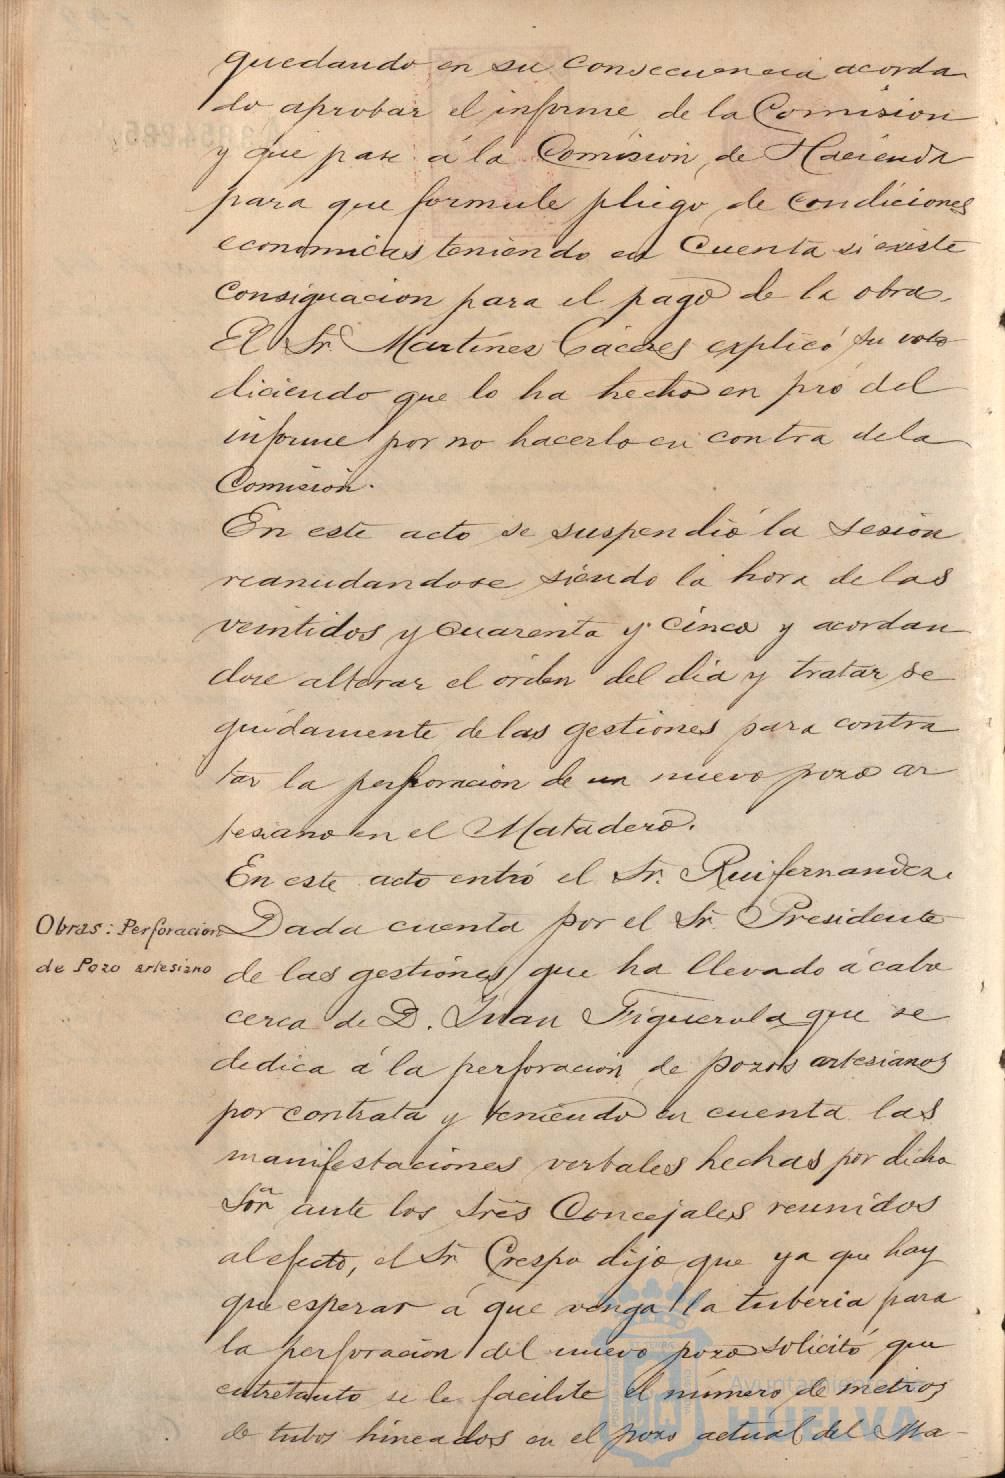 quedando en su consecuencia acorda
do aprobar el informe de la Comision
y que pase á la Comision de Hacienda
para que formule pliego de condiciones
economicas teniendo en cuenta si existe
consignacion para el pago de la obra.
El Sr. Martínez Cáceres explicó su voto
diciendo que lo ha hecho en pró del
informe por no hacerlo en contra de la
Comision.
En este acto se suspendió la sesion
reanudandose siendo la hora de las
veintidos y cuarenta y cinco y acordan
dose alterar el orden del dia y tratar se
guidamente de las gestiones para contra
tar la perforacion de un nuevo pozo ar
tesiano en el Matadero.
En este acto entró el Sr. Ruifernandez.
Obras: Perforacion
de Pozo artesiano
Dada cuenta por el Sr. Presidente
de las gestiones que ha llevado á cabo
cerca de D. Juan Figuerola que se
dedica á la perforacion de pozos artesianos
por contrata y teniendo en cuenta las
manifestaciones verbales hechas por dicho
Sor ante los Sres Concejales reunidos
al efecto, el Sr. Crespo dijo que ya que hay
que esperar á que venga la tuberia para
la perforacion del nuevo pozo solicitó que
entretanto se le facilite el número de metros
de tubos hincados en el pozo actual del Ma-
Ayuntamiento de
HUELVA